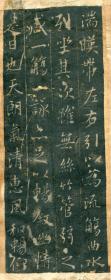 湍暎帶左右引以為流觴曲水
列坐其次雖無絲竹管弦之
盛一觴一詠亦足以暢叙幽情
是日也天朗氣清惠風和暢仰